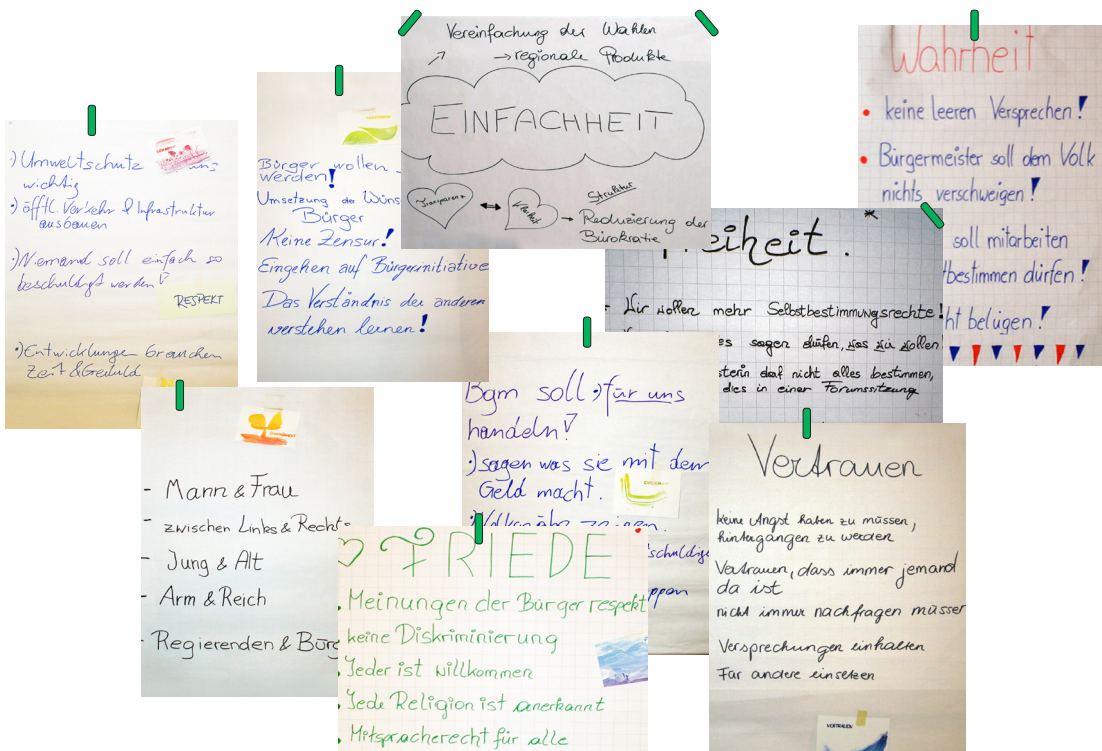 ·) Umweltschutz uns
wichtig
·) öfftl. Verkehr & Infrastruktur
ausbauen
·) Niemand soll einfach so
beschuldigt werden!
RESPEKT
·) Entwicklungen brauchen
Zeit & Geduld
Bürger wollen
werden!
Umsetzung der Wüns
Bürger
Keine Zensur!
Eingehen auf Bürgerinitiative
Das Verständnis der anderen
verstehen lernen!
Vereinfachung der Wahlen
→ regionale Produkte
EINFACHHEIT
Transparenz ↔ Klarheit
Struktur
→ Reduzierung der
Bürokratie
Wahrheit
• keine leeren Versprechen!
• Bürgermeister soll dem Volk
nichts verschweigen!
soll mitarbeiten
tbestimmen dürfen!
ht belügen!
eiheit.
- Wir wollen mehr Selbstbestimmungsrechte!
es sagen dürfen, was wir wollen
sterin darf nicht alles bestimmen,
dies in einer Forumssitzung
- Mann & Frau
- zwischen Links & Rechts
- Jung & Alt
- Arm & Reich
- Regierenden & Bürg
Bgm soll ·) für uns
handeln!
·) sagen was sie mit dem
Geld macht.
·) Volksnähe zeigen.
schuldige
ppen
FRIEDE
• Meinungen der Bürger respekt
keine Diskriminierung
• Jeder ist willkommen
• Jede Religion ist anerkannt
• Mitspracherecht für alle
Vertrauen
keine Angst haben zu müssen,
hintergangen zu werden
Vertrauen, dass immer jemand
da ist
nicht immer nachfragen müssen
Versprechungen einhalten
Für andere einsetzen
VERTRAUEN